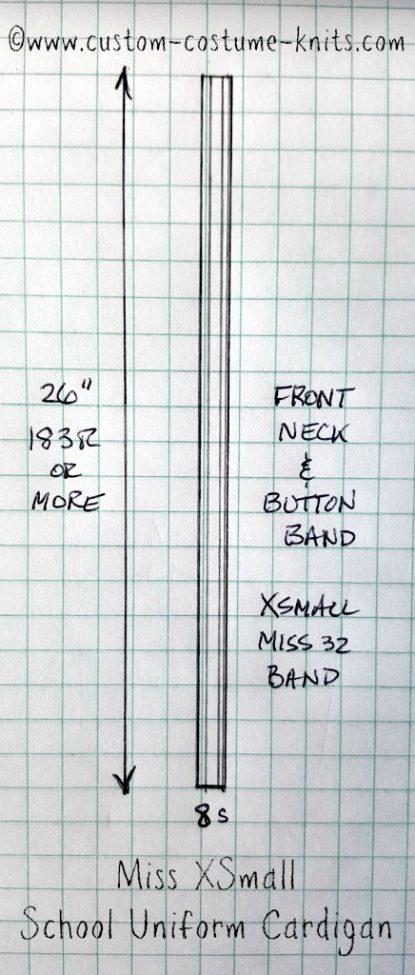 ©www.custom-costume-knits.com
26"
183R
OR
MORE
FRONT
NECK
&
BUTTON
BAND
XSMALL
MISS 32
BAND
8s
Miss XSmall
School Uniform Cardigan